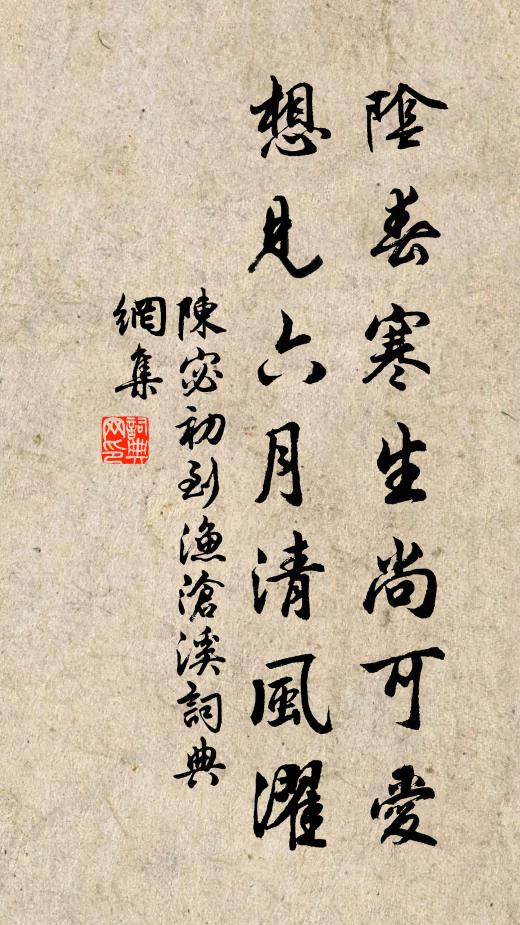 陰春寒生尚可愛
想見六月清風濯
陳宓初到漁滄溪詞典
網集
詞典
网印